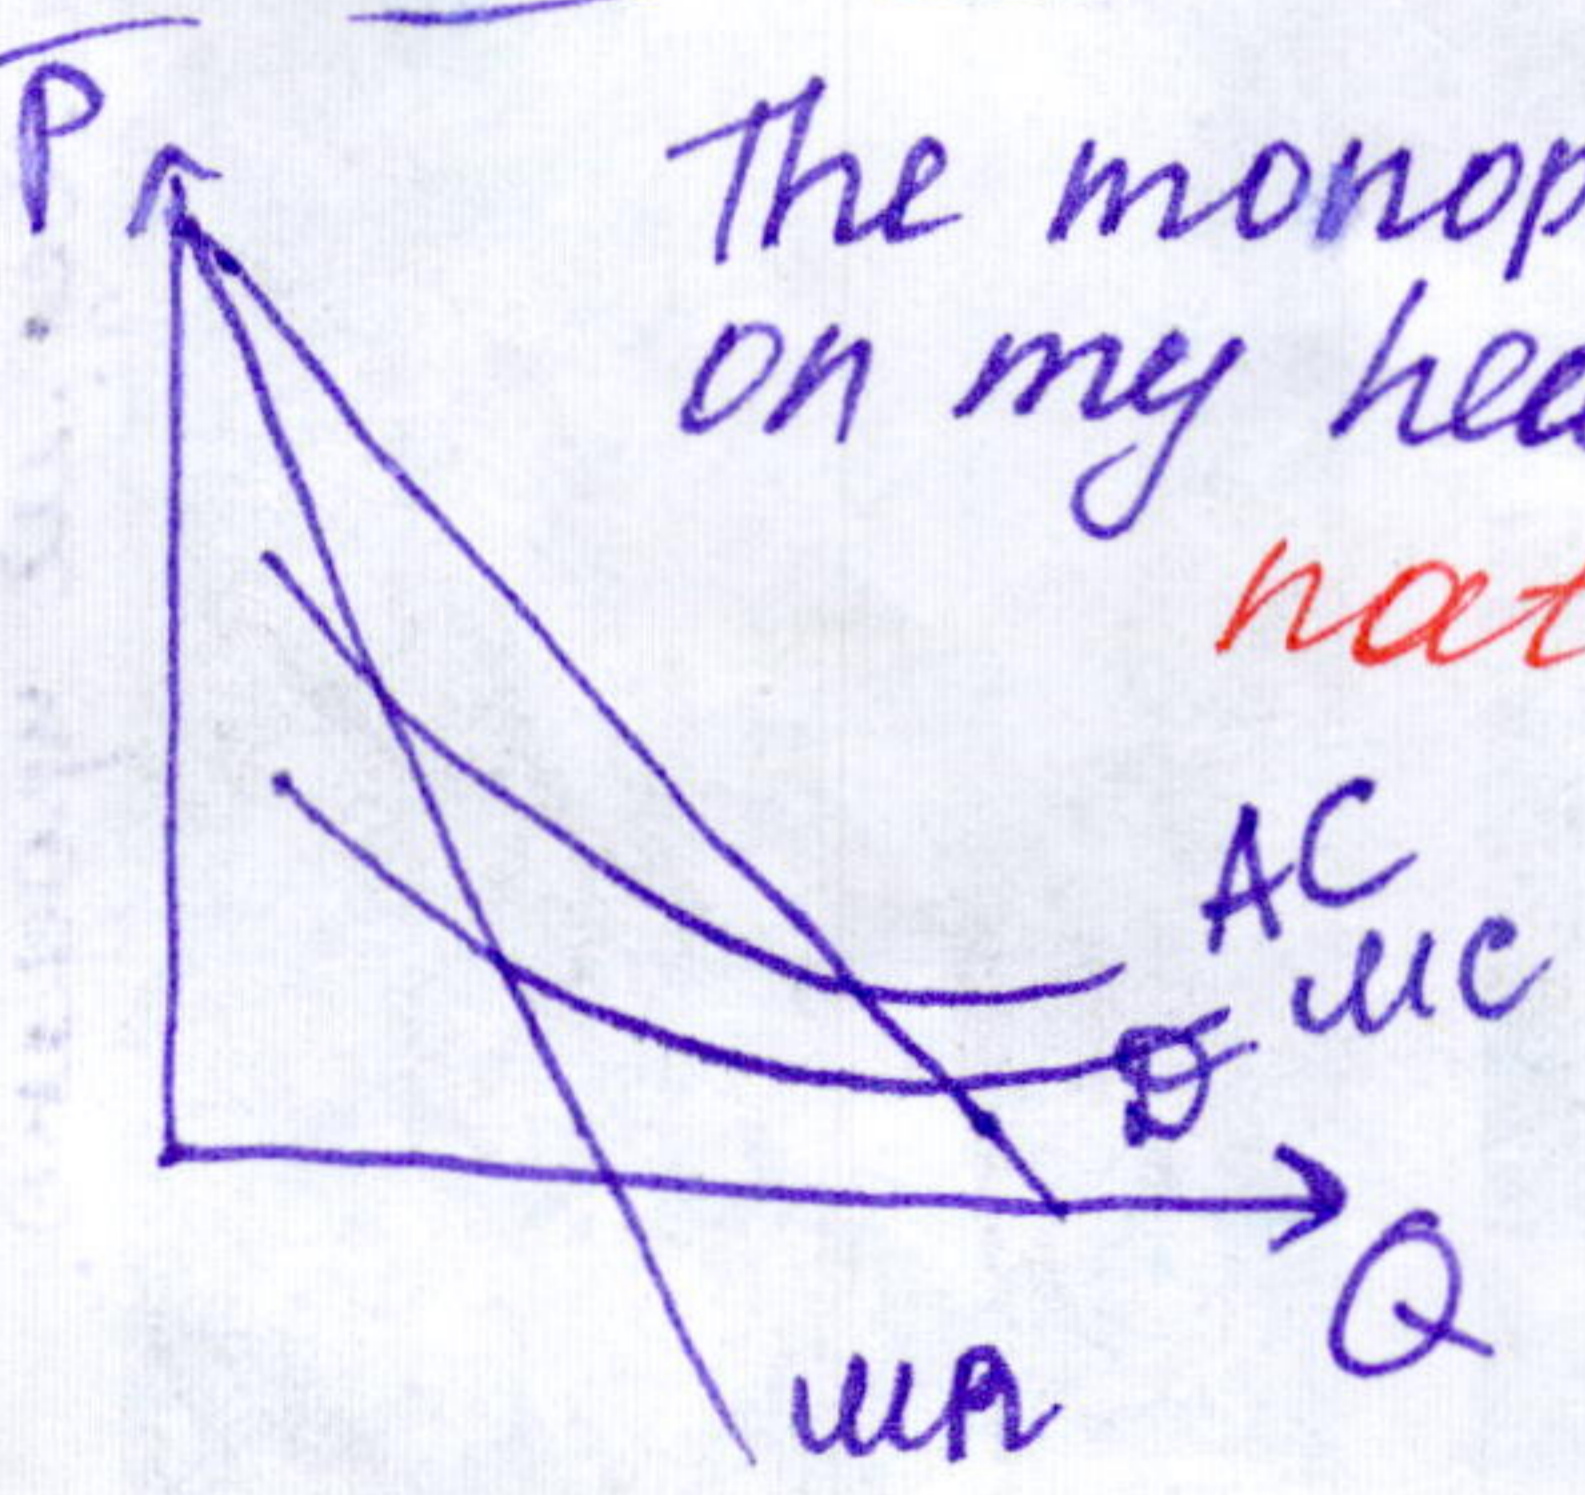 P
The monop
on my hea
nat
AC
MC
D
Q
MR